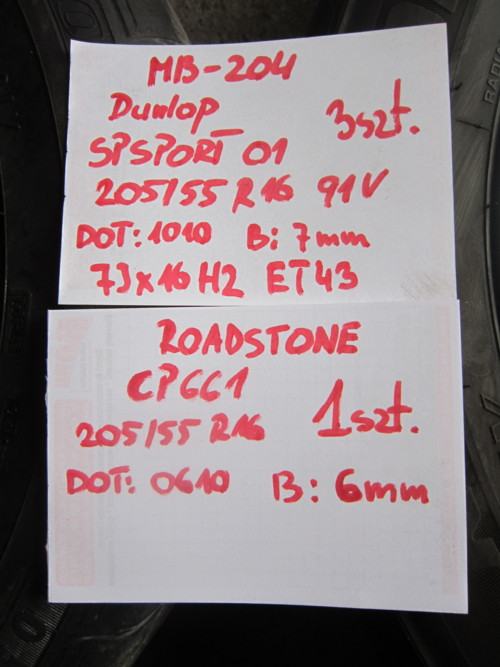 MB-204
Dunlop
3szt.
SPSPORT 01
205/55 R16 91V
DOT: 1010 B: 7mm
7Jx16 H2 ET43
ROADSTONE
CP661
1szt.
205/55 R16
DOT: 0610 B: 6mm